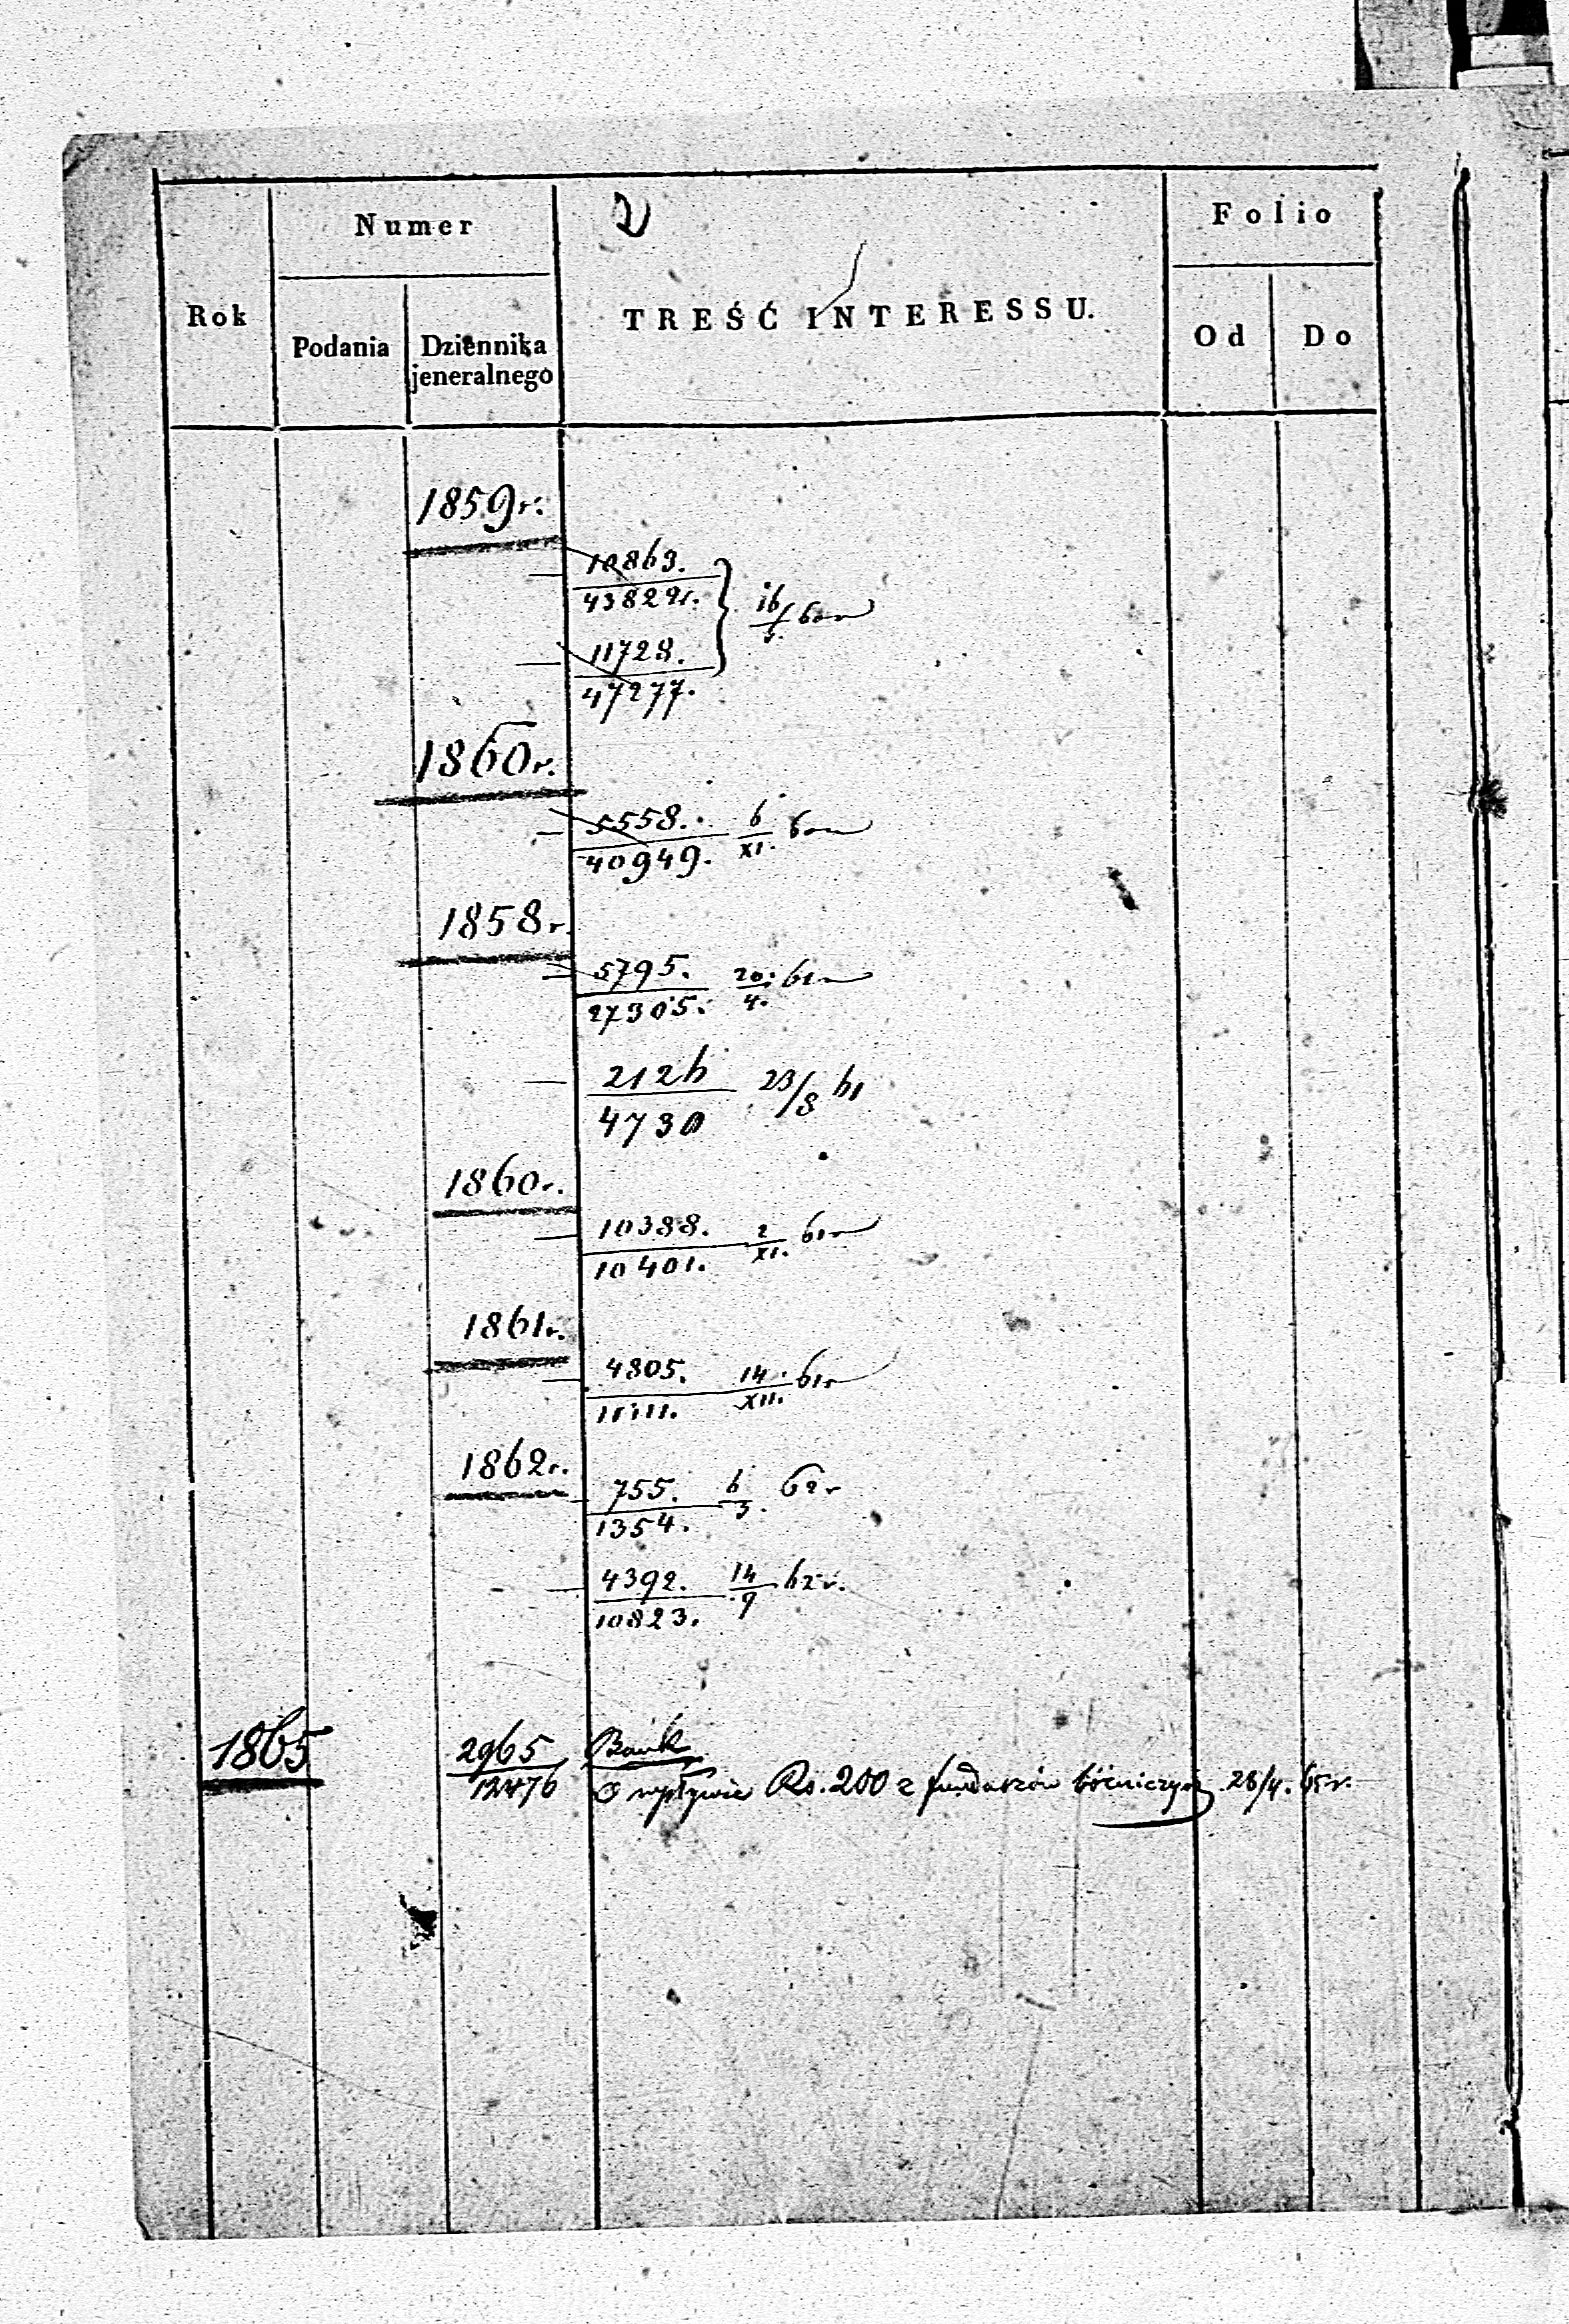 2
Rok
Numer
Podania
Dziennika
jeneralnego
TREŚĆ INTERESSU.
Folio
Od
Do
1859r.
10863.
43829
16/5. 60
11728.
47277.
1860r.
5558.
40949.
6/XI. 60
1858r.
5795.
27305.
20/4. 61
2126
4730
23/8 61
1860r.
10388.
10401.
2/XI. 61
1861r.
4805.
11111.
14/XII. 61r
1862r.
755.
1354.
6/3. 62r
4392.
10823.
14/9 62r.
1865
2965
12476
Bank
O wpływie Rs. 200 z funduszów bóżniczych 28/4. 65r.